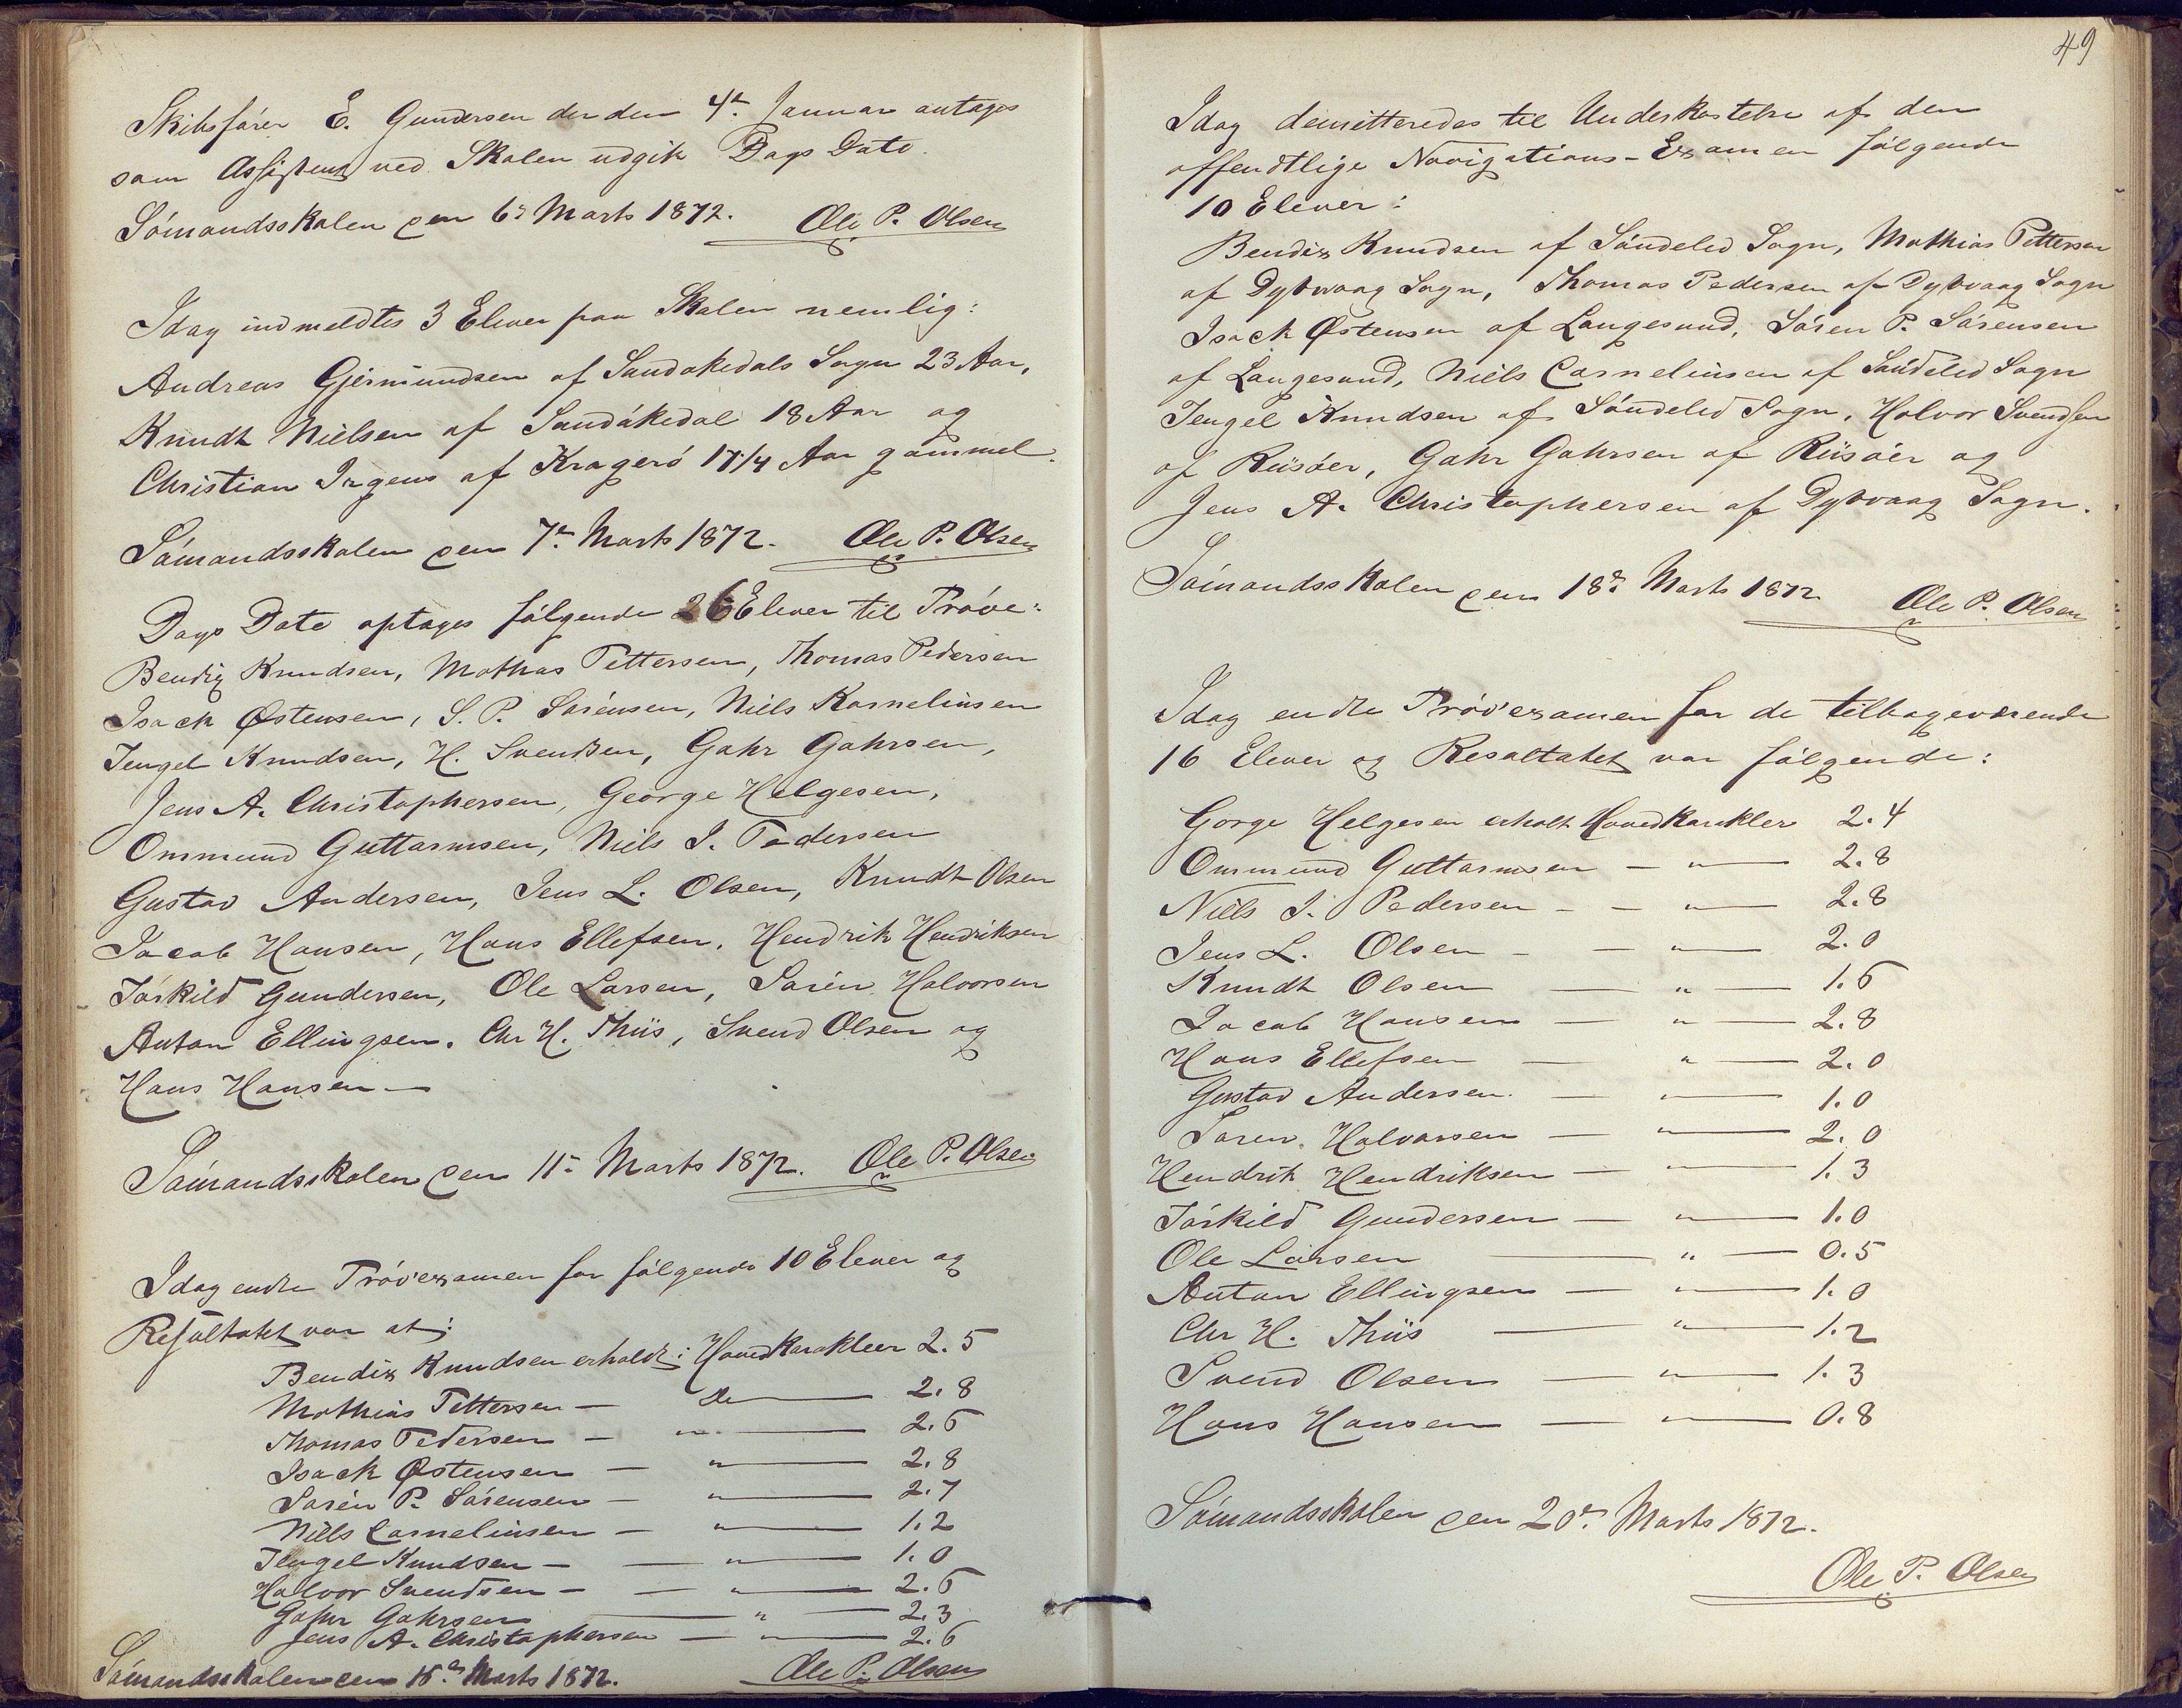 Skibsfører E. Gundersen der den 4de Januar antages
som Assistent ved Skolen udgik Dags Dato.
Sómandsskolen den 6te Marts 1872. Ole P. Olsen
Idag indmeldtes 3 Elever paa Skolen nemlig:
Andreas Gjermundsen af Sandøkedals Sogn 23 Aar,
Knudt Nielsen af Sandókedal 18 Aar og
Christian Irgens af Krageró 17 1/4 Aar gammel.
Sómandsskolen den 7de Marts 1872. Ole P. Olsen
Dags Dato optages fólgende 26 Elever til Próve:
Bendix Knudsen, Mathias Pettersen, Thomas Pedersen
Isack Østensen, S. P. Sórensen, Niels Kornelinsen
Tengel Knudsen, H. Svendsen, Gahr Gahrsen,
Jens A. Christophersen, George Helgesen,
Ommund Guttormsen, Niels I. Pedersen
Gustav Andersen, Jens L. Olsen, Knudt Olsen
Jacob Hansen, Hans Ellefsen, Hendrik Hendriksen
Tórkild Gundersen, Ole Larsen, Sóren Halvorsen
Anton Ellingsen, Chr H. Thiis, Svend Olsen og
Hans Hansen —
Sómandsskolen den 11te Marts 1872. Ole P. Olsen
Idag endte Próvexamen for fólgende 10 Elever og
Resultatet var at:
Bendix Knudsen erholdt: Hovedkarakteer 2.5
Mathias Pettersen — Do — 2.8
Thomas Pedersen — " — 2.6
Isack Østensen — " — 2.8
Sóren P. Sórensen — " — 2.7
Niels Cornelinsen — " — 1.2
Tengel Knudsen — — " — 1.0
Halvor Svendsen — — " — 2.6
Gahr Gahrsen — " — 2.3
Jens A. Christophersen — " — 2.6
Sómandsskolen den 18de Marts 1872. Ole P. Olsen
49
Idag demitteredes til Underkastelse af den
offendtlige Navigations-Examen fólgende
10 Elever:
Bendix Knudsen af Sóndeled Sogn, Mathias Pettersen
af Dybvaag Sogn, Thomas Pedersen af Dybvaag Sogn
Isack Østensen af Langesund, Sóren P. Sórensen
af Langesund, Niels Cornelinsen af Sóndeled Sogn
Tengel Knudsen af Sóndeled Sogn, Halvor Svendsen
af Riisóer, Gahr Gahrsen af Riisóer og
Jens A. Christophersen af Dybvaag Sogn.
Sómandsskolen den 18de Marts 1872 Ole P. Olsen
Idag endte Próvexamen for de tilbageværende
16 Elever og Resultatet var fólgende:
Gorge Helgesen erholt Hovedkarakter 2.4
Ommund Guttormsen — " — 2.8
Niels I. Pedersen — — " — 2.8
Jens L. Olsen — — " — 2.0
Knudt Olsen — " — 1.6
Jacob Hansen — " — 2.8
Hans Ellefsen — " — 2.0
Gustav Andersen — " — 1.0
Soren Halvorsen — " — 2.0
Hendrik Hendriksen — " — 1.3
Tórkild Gundersen — " — 1.0
Ole Larsen — " — 0.5
Anton Ellingsen — " — 1.0
Chr H. Thiis — " — 1.2
Svend Olsen — " — 1.3
Hans Hansen — " — 0.8
Sómandsskolen den 20de Marts 1872.
Ole P. Olsen